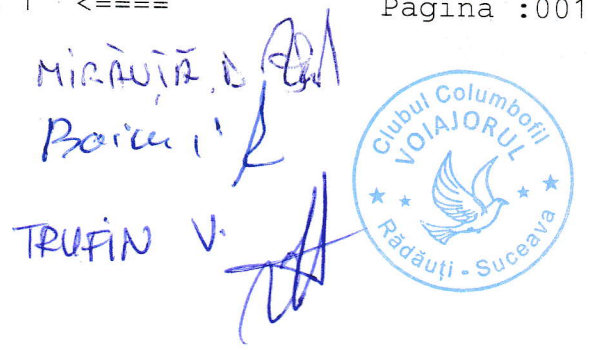 <====
Pagina :001
MIRĂUȚĂ D.
TRUFIN V.
Clubul Columbofil
VOIAJORUL
Rădăuți - Suceava